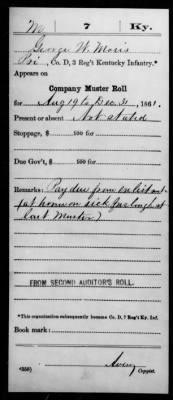 M | 7 | Ky.
George W. Moris
Pvt, Co. D, 3 Reg't Kentucky Infantry.*
Appears on
Company Muster Roll
for Aug 19 to Dec. 31, 1861.
Present or absent Not stated
Stoppage, $ 100 for
Due Gov't, $ 100 for
Remarks: Pay due from enlistment
home on sick furlough at
last Muster)
FROM SECOND AUDITOR'S ROLL.
*This organization subsequently became Co. D, 7 Reg't Ky. Inf.
Book mark:
Avery
(358) Copyist.